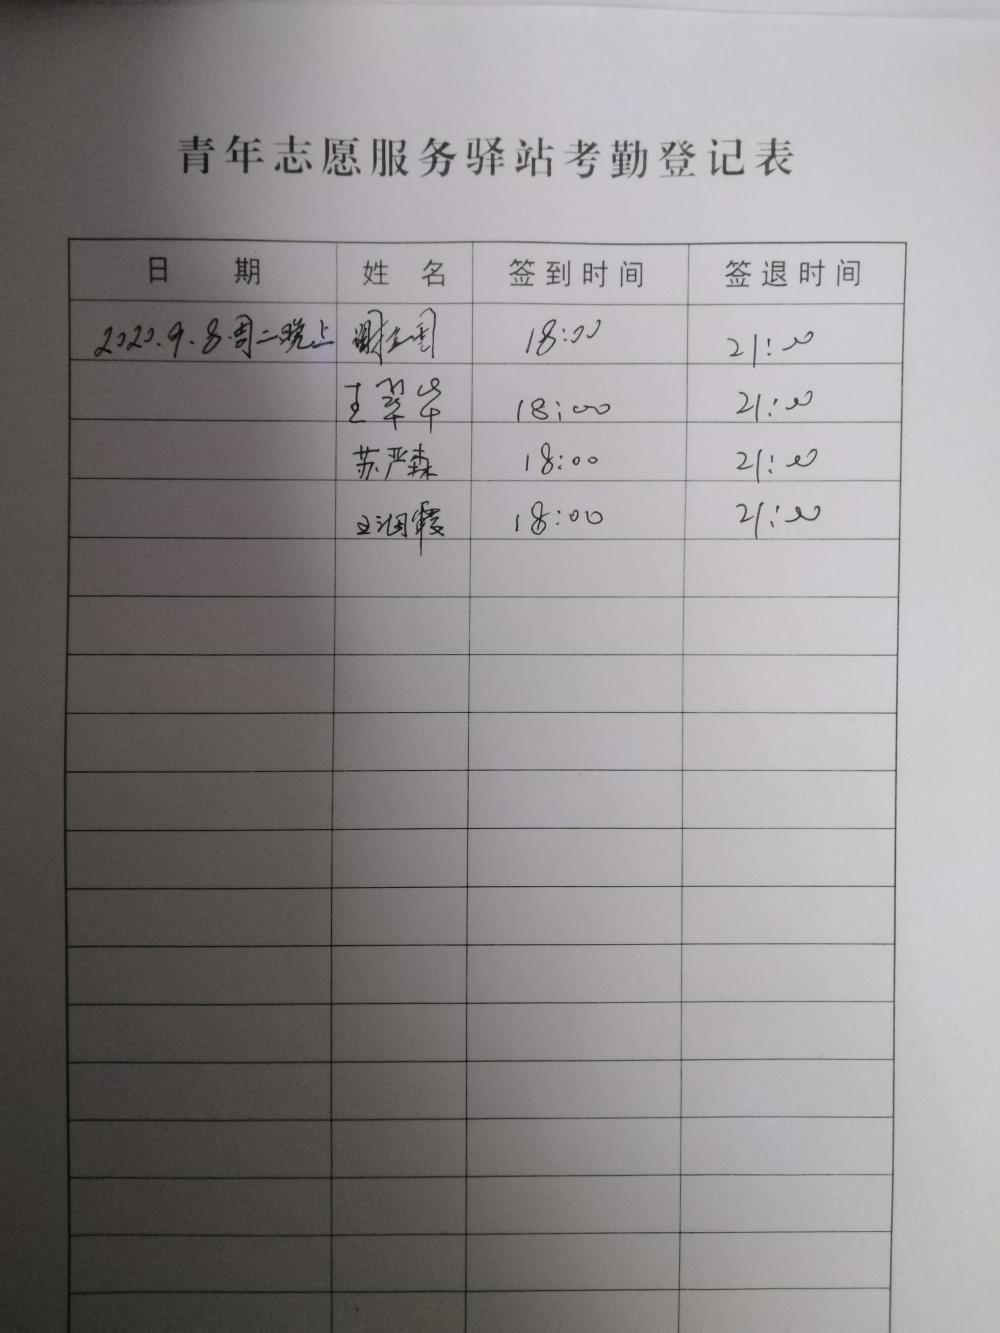 青年志愿服务驿站考勤登记表
日 期 姓 名 签到时间 签退时间
2020.9.8.周二晚上 谢 18:00 21:00
王翠华 18:00 21:00
苏严森 18:00 21:00
王润霞 18:00 21:00